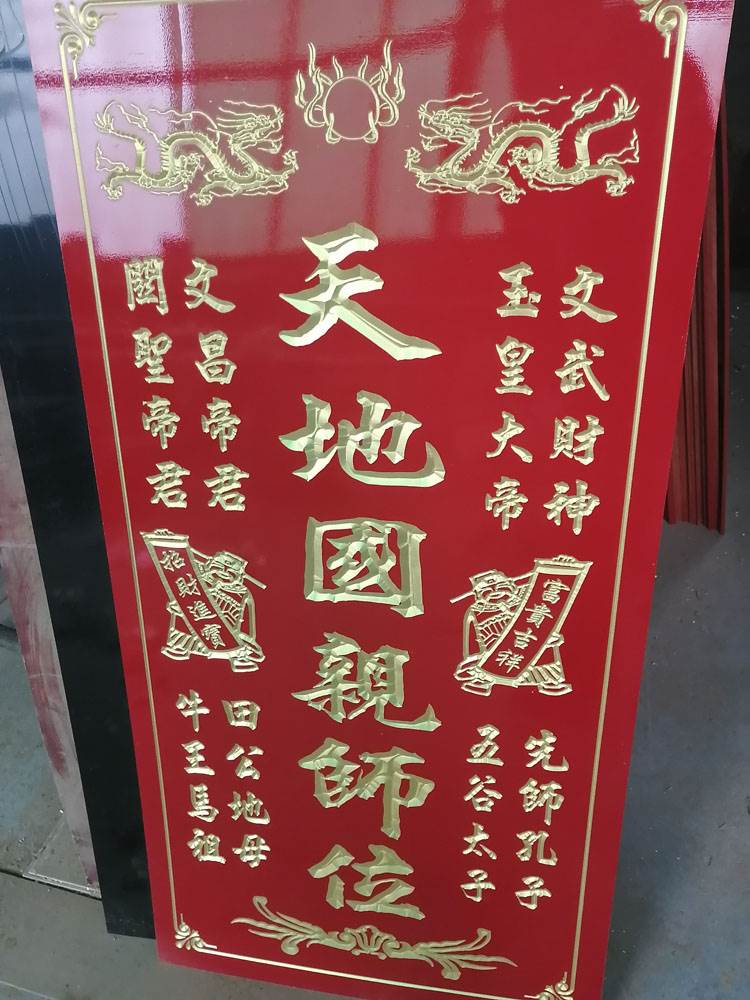 文武財神
玉皇大帝
富貴吉祥
先師孔子
五谷太子
天地國親師位
文昌帝君
關聖帝君
招財進寶
田公地母
牛王馬祖